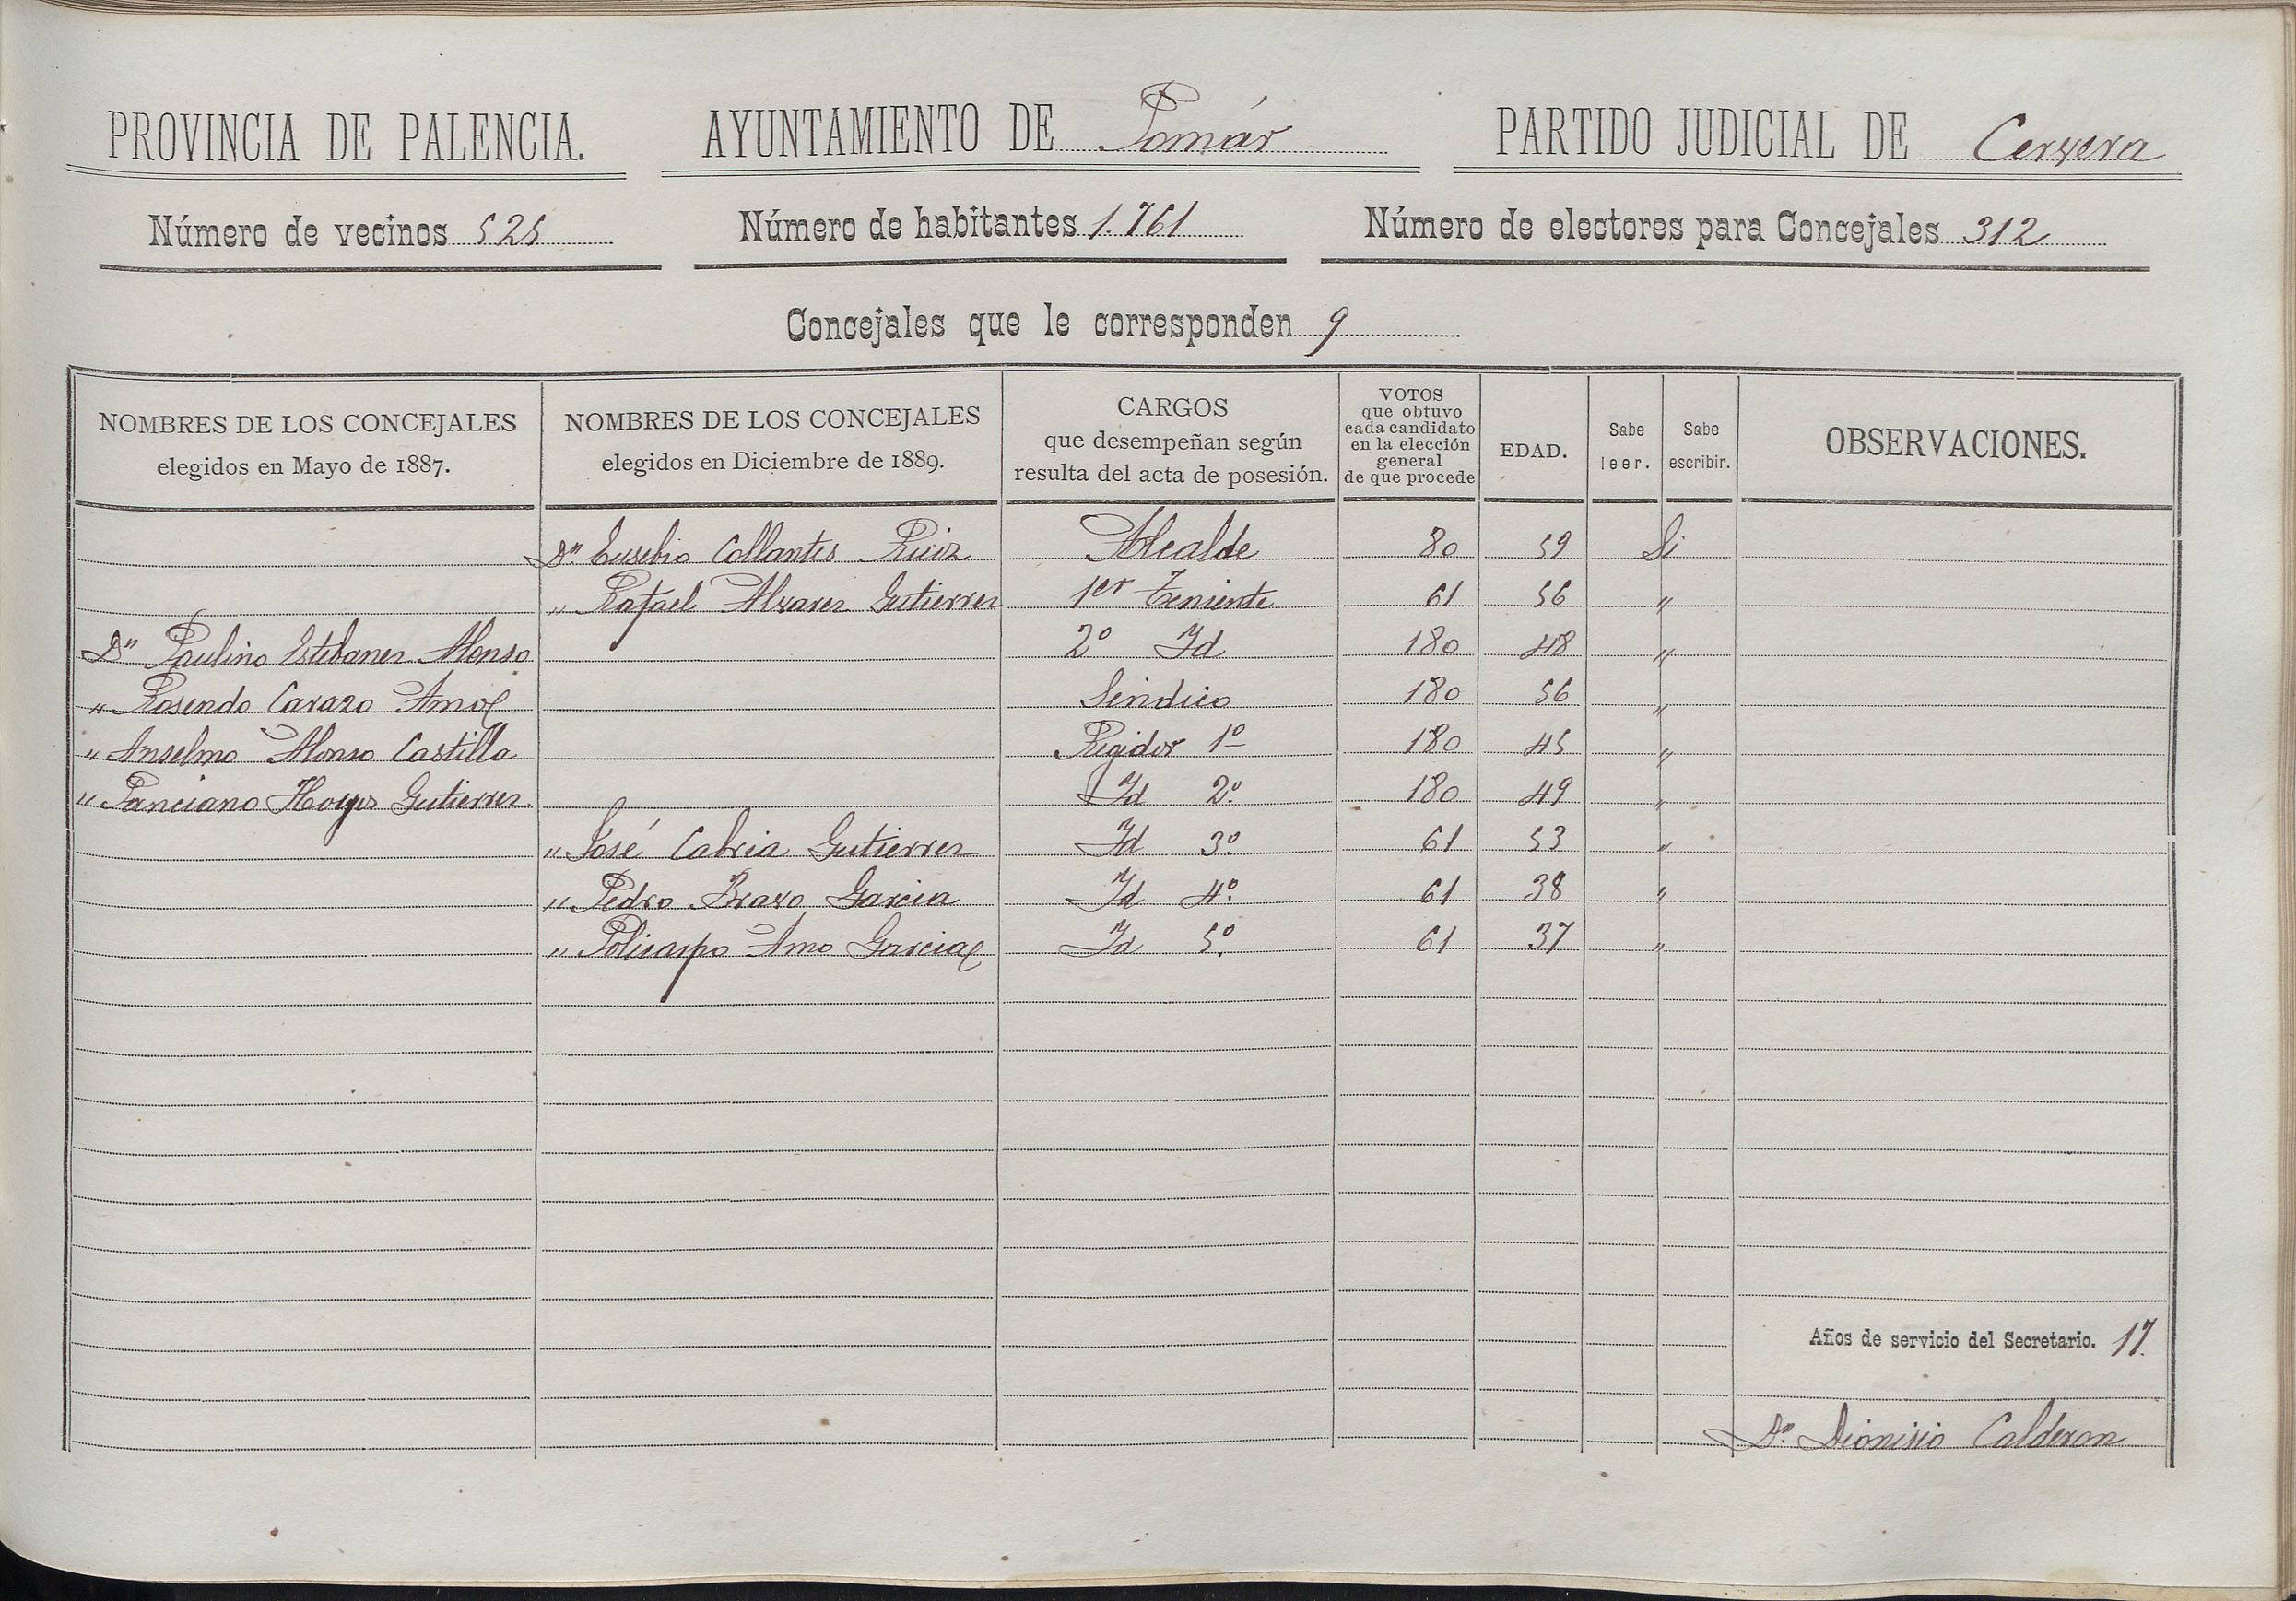 PROVINCIA DE PALENCIA. AYUNTAMIENTO DE Pomár PARTIDO JUDICIAL DE Cervera
Número de vecinos 525 Número de habitantes 1.761 Número de electores para Concejales 312
Concejales que le corresponden 9
NOMBRES DE LOS CONCEJALES
elegidos en Mayo de 1887.
NOMBRES DE LOS CONCEJALES
elegidos en Diciembre de 1889.
CARGOS
que desempeñan según
resulta del acta de posesión.
VOTOS
que obtuvo
cada candidato
en la elección
general
de que procede
EDAD.
Sabe
leer.
Sabe
escribir.
OBSERVACIONES.
Dn Eusebio Collantes Ruiz Alcalde 80 59 Si
" Rafael Alvarez Gutierrez 1er Teniente 61 56 "
Dn Paulino Estebanez Alonso 2º Id 180 48 "
" Rosendo Carazo Amo Sindico 180 56 "
" Anselmo Alonso Castilla Regidor 1º 180 45 "
" Panciano Hoyos Gutierrez Id 2º 180 49 "
" José Cabria Gutierrez Id 3º 61 53 "
" Pedro Bravo Garcia Id 4º 61 38 "
" Policarpo Amo Garcia Id 5º 61 37 "
Años de servicio del Secretario. 17.
Dn Dionisio Calderon